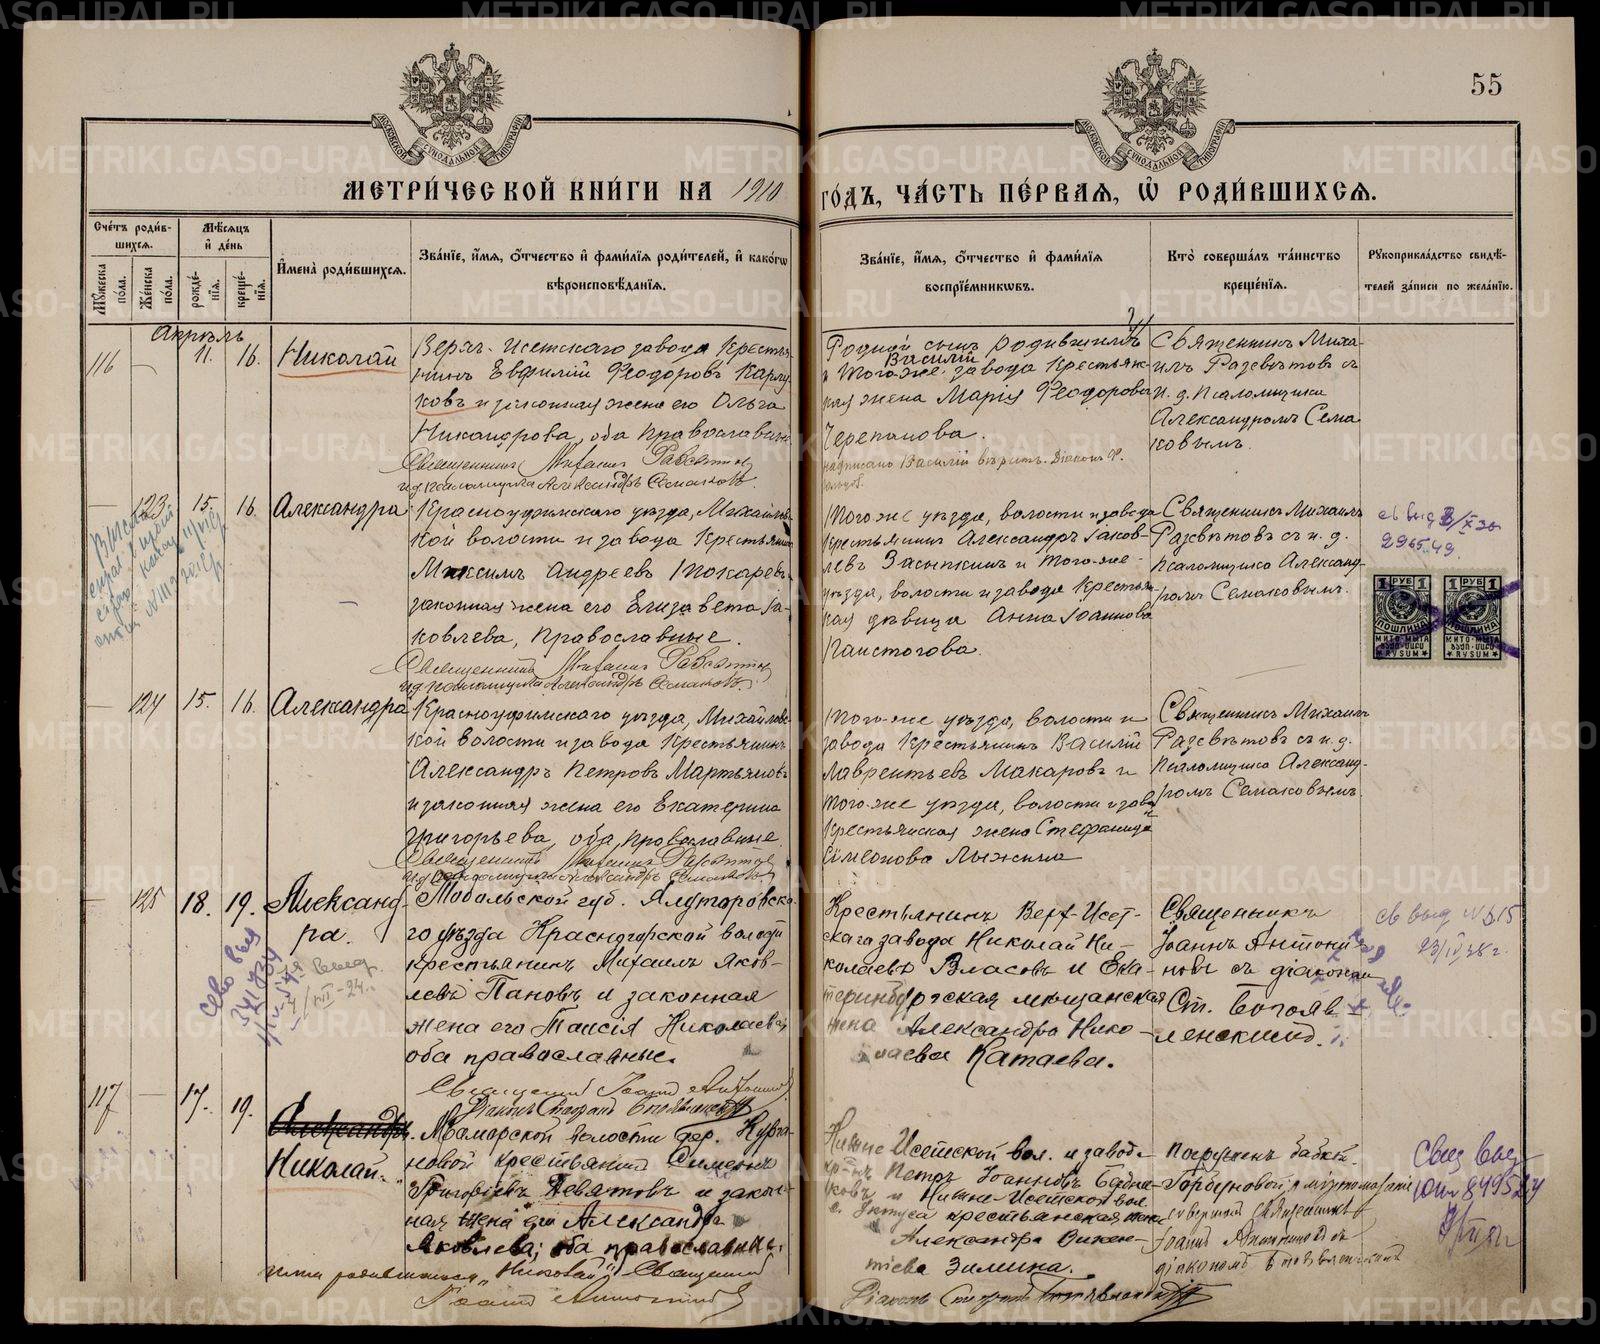 55
МОСКОВСКОЙ СѴНОДАЛЬНОЙ ТИПОГРАФІИ
МОСКОВСКОЙ СѴНОДАЛЬНОЙ ТИПОГРАФІИ
МЕТРИ́ЧЕСКОЙ КНИ́ГИ НА 1910 ГО́ДЪ, ЧА́СТЬ ПЕ́РВАЯ, Ѡ҆ РОДИ́ВШИХСЯ.
Сче́тъ роди́в-
шихся.
Мꙋ́жеска по́ла.
Же́нска по́ла.
Мѣ́сяцъ и҆ де́нь
рожде́-нїя.
креще́-нїя.
И҆мена̀ роди́вшихся.
Зва́нїе, и҆́мя, ѻ҆́тчество и҆ фами́лїя роди́телей, и҆ како́гѡ
вѣроисповѣ́данїя.
Зва́нїе, и҆́мя, ѻ҆́тчество и҆ фами́лїя
воспрїе́мниковъ.
Кто̀ соверша́лъ та́инство
креще́нїя.
Рꙋкоприкла́дство свидѣ́-
телей за́писи по жела́нїю.
Апрѣль
116
11.
16.
Николай
Верх-Исетскаго завода крестья-
нинъ Евфилій Ѳеодоровъ Карпу-
ковъ и законная жена его Ольга
Никандрова, оба православн.
Священникъ Михаилъ Разсвѣтов
и.д. псаломщика Александръ Семаковъ.
Родной сынъ родившихъ
Василій
и того-же завода крестьян-
ская жена Марія Ѳеодорова
Черепанова.
надписано Василій вѣрить. Діаконъ
Священникъ Миха-
илъ Разсвѣтовъ съ
и. д. псаломщика
Александромъ Сема-
ковымъ.
123
15.
16.
Александра
Красноуфимскаго уѣзда, Михайлов-
кой волости и завода крестьянинъ
Максимъ Андреевъ Токаревъ
законная жена его Елизавета Іа-
ковлева, православные.
Священникъ Михаилъ Разсвѣтов
и.д. псаломщика Александръ Семаковъ.
Того-же уѣзда, волости и завода
крестьянинъ Александръ Іаков-
левъ Засыпкинъ и того-же
уѣзда, волости и завода крестьян-
кая дѣвица Анна Іоаннова
Паистогова.
Священникъ Михаилъ
Разсвѣтовъ съ и. д.
псаломщика Александ-
ромъ Семаковымъ.
2965.49.
1 РУБ 1
ПОШЛИНА
МИТО-МЫТА
RYSUM
1 РУБ 1
ПОШЛИНА
МИТО-МЫТА
RYSUM
124
15.
16.
Александра
Красноуфимскаго уѣзда, Михайловс-
кой волости и завода крестьянинъ
Александръ Петровъ Мартьяновъ
и законная жена его Екатерина
Григорьева, оба православные.
Священникъ Михаилъ Разсвѣтов
и.д. псаломщика Александръ Семаковъ.
Того-же уѣзда, волости и
завода крестьянинъ Василій
Лаврентьевъ Макаровъ и
того-же уѣзда, волости и завода
крестьянская жена Стефанида
Симеонова Лыжина
Священникъ Михаилъ
Разсвѣтовъ съ и. д.
псаломщика Александ-
ромъ Семаковымъ.
125
18.
19.
Александ-
ра.
Тобольской губ. Ялуторовска-
го уѣзда Красногорской волости
крестьянинъ Михаилъ Яков-
левъ Пановъ и законная
жена его Таисія Николаева
оба православные.
Священникъ Іоаннъ Антоновъ
Діаконъ Стефанъ Богоявленскій
Крестьянинъ Верх-Исет-
скаго завода Николай Ни-
колаевъ Власовъ и Ека-
теринбургская мѣщанская
жена Александра Нико-
лаева Катаева.
Священникъ
Іоаннъ Антони-
новъ съ діакономъ
Ст. Богояв-
ленскимъ.
св выд № 515
23/IV 28 г.
117
17.
19.
Александръ.
Николай.
Маморской волости дер. Курга-
новой крестьянинъ Симеонъ
Григорьевъ Девятовъ и закон-
ная жена его Александра
Яковлева; оба православные.
имя родившагося „Николай" Священникъ
Іоаннъ Антониновъ
Нижне Исетской вол. и завода
кр-нъ Петръ Іоанновъ Бѣдня-
ковъ и Нижне-Исетской вол.
крестьянская жена
Александра Викен-
тіева Зимина.
Діаконъ Стефанъ Богоявленскій
Погруженъ бабкой
Горбуновой, а мѵропомазаніе
совершилъ священникъ
Іоаннъ Антониновъ съ
діакономъ Богоявленскимъ
Свид выд
METRIKI.GASO-URAL.RU